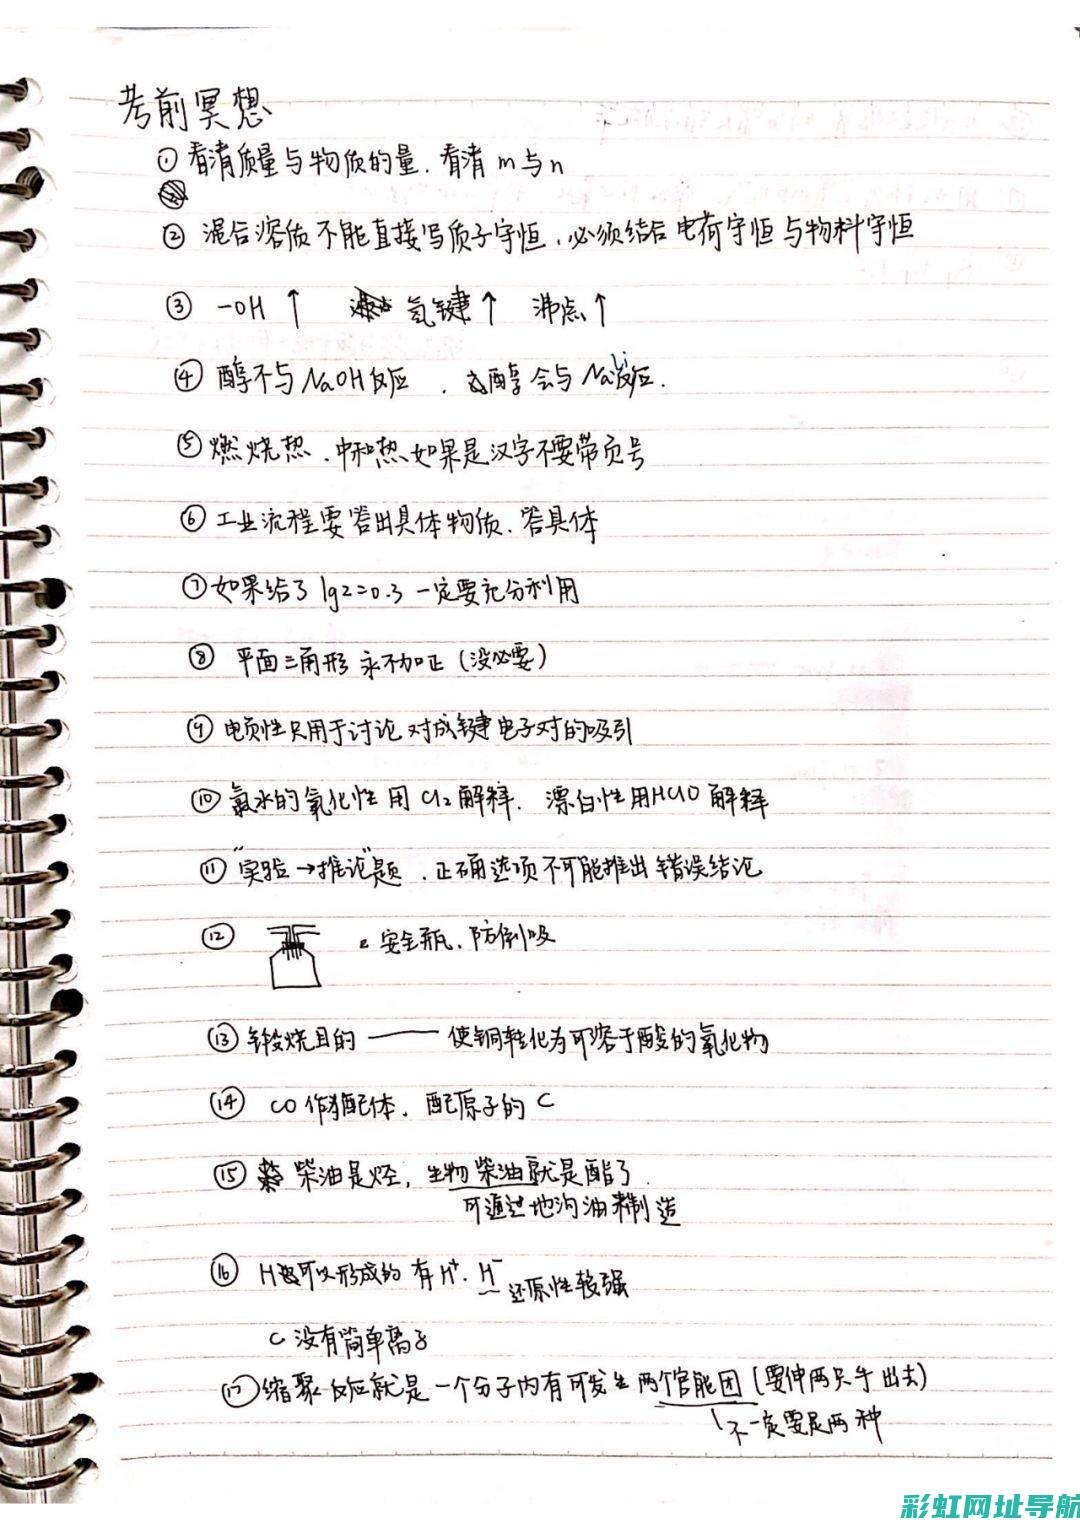 考前冥想
① 看清质量与物质的量．看清 m 与 n
② 混合溶质不能直接写质子守恒，必须结合电荷守恒与物料守恒
③ -OH ↑ 氢键↑ 沸点↑
④ 醇不与NaOH反应 ．醇会与Na反应．
⑤ 燃烧热．中和热如果是汉字不要带负号
⑥ 工业流程要答出具体物质．答具体
⑦ 如果给了 lg2=0.3 一定要充分利用
⑧ 平面三角形 永不加正（没必要）
⑨ 电负性只用于讨论对成键电子对的吸引
⑩ 氯水的氧化性用 Cl2 解释．漂白性用HClO解释
⑪ "实验→推论"题．正确选项不可能推出错误结论
⑫ 安全瓶．防倒吸
⑬ 锻烧目的 —— 使铜转化为可溶于酸的氧化物
⑭ CO 作配体．配原子的 C
⑮ 柴油是烃，生物柴油就是酯了．
可通过地沟油来制造
⑯ H可以形成的有H⁺．H⁻ 还原性较强
C 没有简单离子
⑰ 缩聚反应就是一个分子内有可发生两个官能团（要伸两只手出去）
不一定要是两种
彩虹网址导航